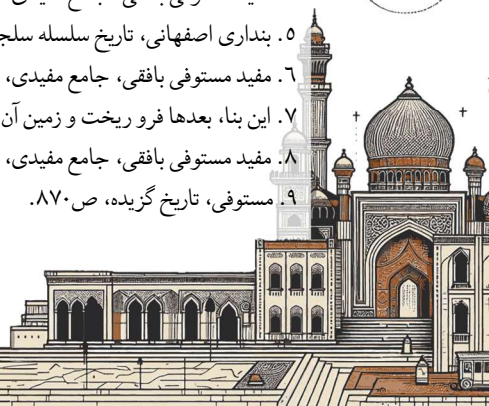 ۵. بنداری اصفهانی، تاریخ سلسله
۶. مفید مستوفی بافقی، جامع مفیدی،
۷. این بنا، بعدها فرو ریخت و زمین آن
۸. مفید مستوفی بافقی، جامع مفیدی،
۹. مستوفی، تاریخ گزیده، ص۸۷۰.